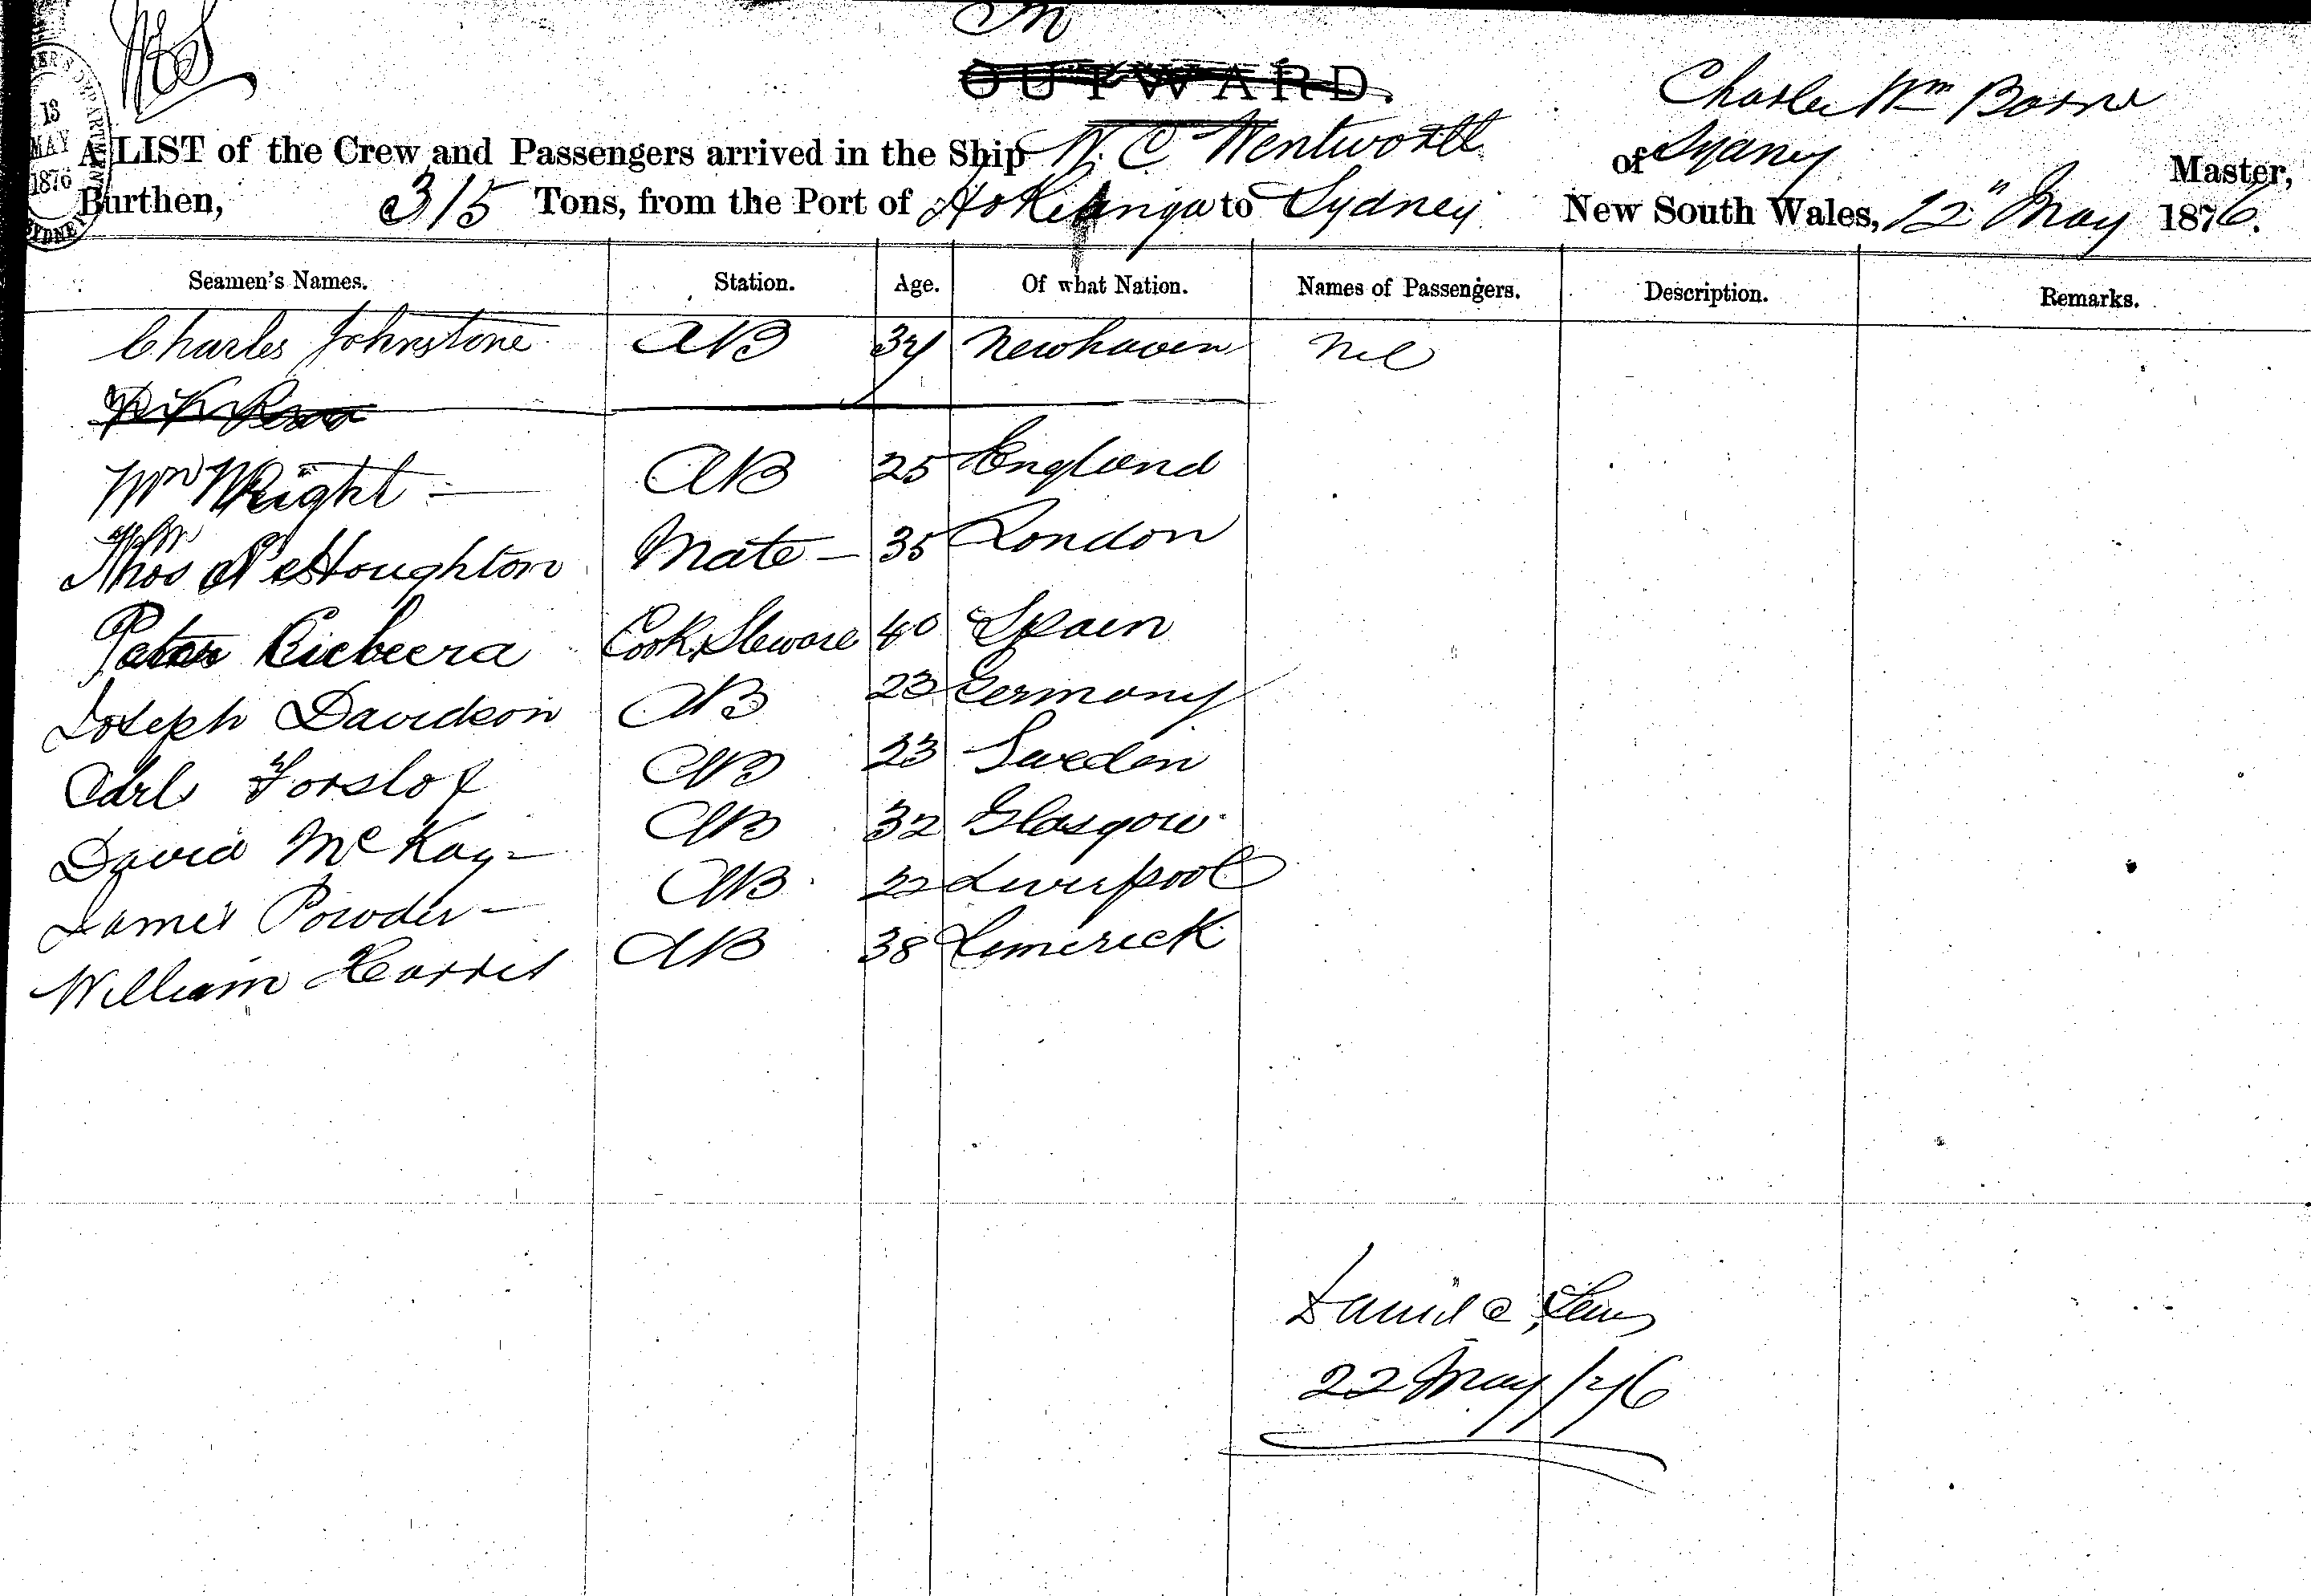 In
OUTWARD.
Charles Wm Borne
A LIST of the Crew and Passengers arrived in the Ship W. C. Wentworth of Sydney Master,
Burthen, 315 Tons, from the Port of Hokianga to Sydney New South Wales, 12" May 1876.
13
MAY
1876
SYDNEY
Seamen's Names. Station. Age. Of what Nation. Names of Passengers. Description. Remarks.
Charles Johnstone AB 34 Newhaven Nil
Wm Wright — AB 25 England
Thos Houghton Mate — 35 London
Peter Riebeera Cook, Steward 40 Spain
Joseph Davidson AB 23 Germany
Carl Forslof AB 23 Sweden
David McKay — AB 32 Glasgow
James Powder — AB 22 Liverpool
William Harris AB 38 Limerick
22 May /76